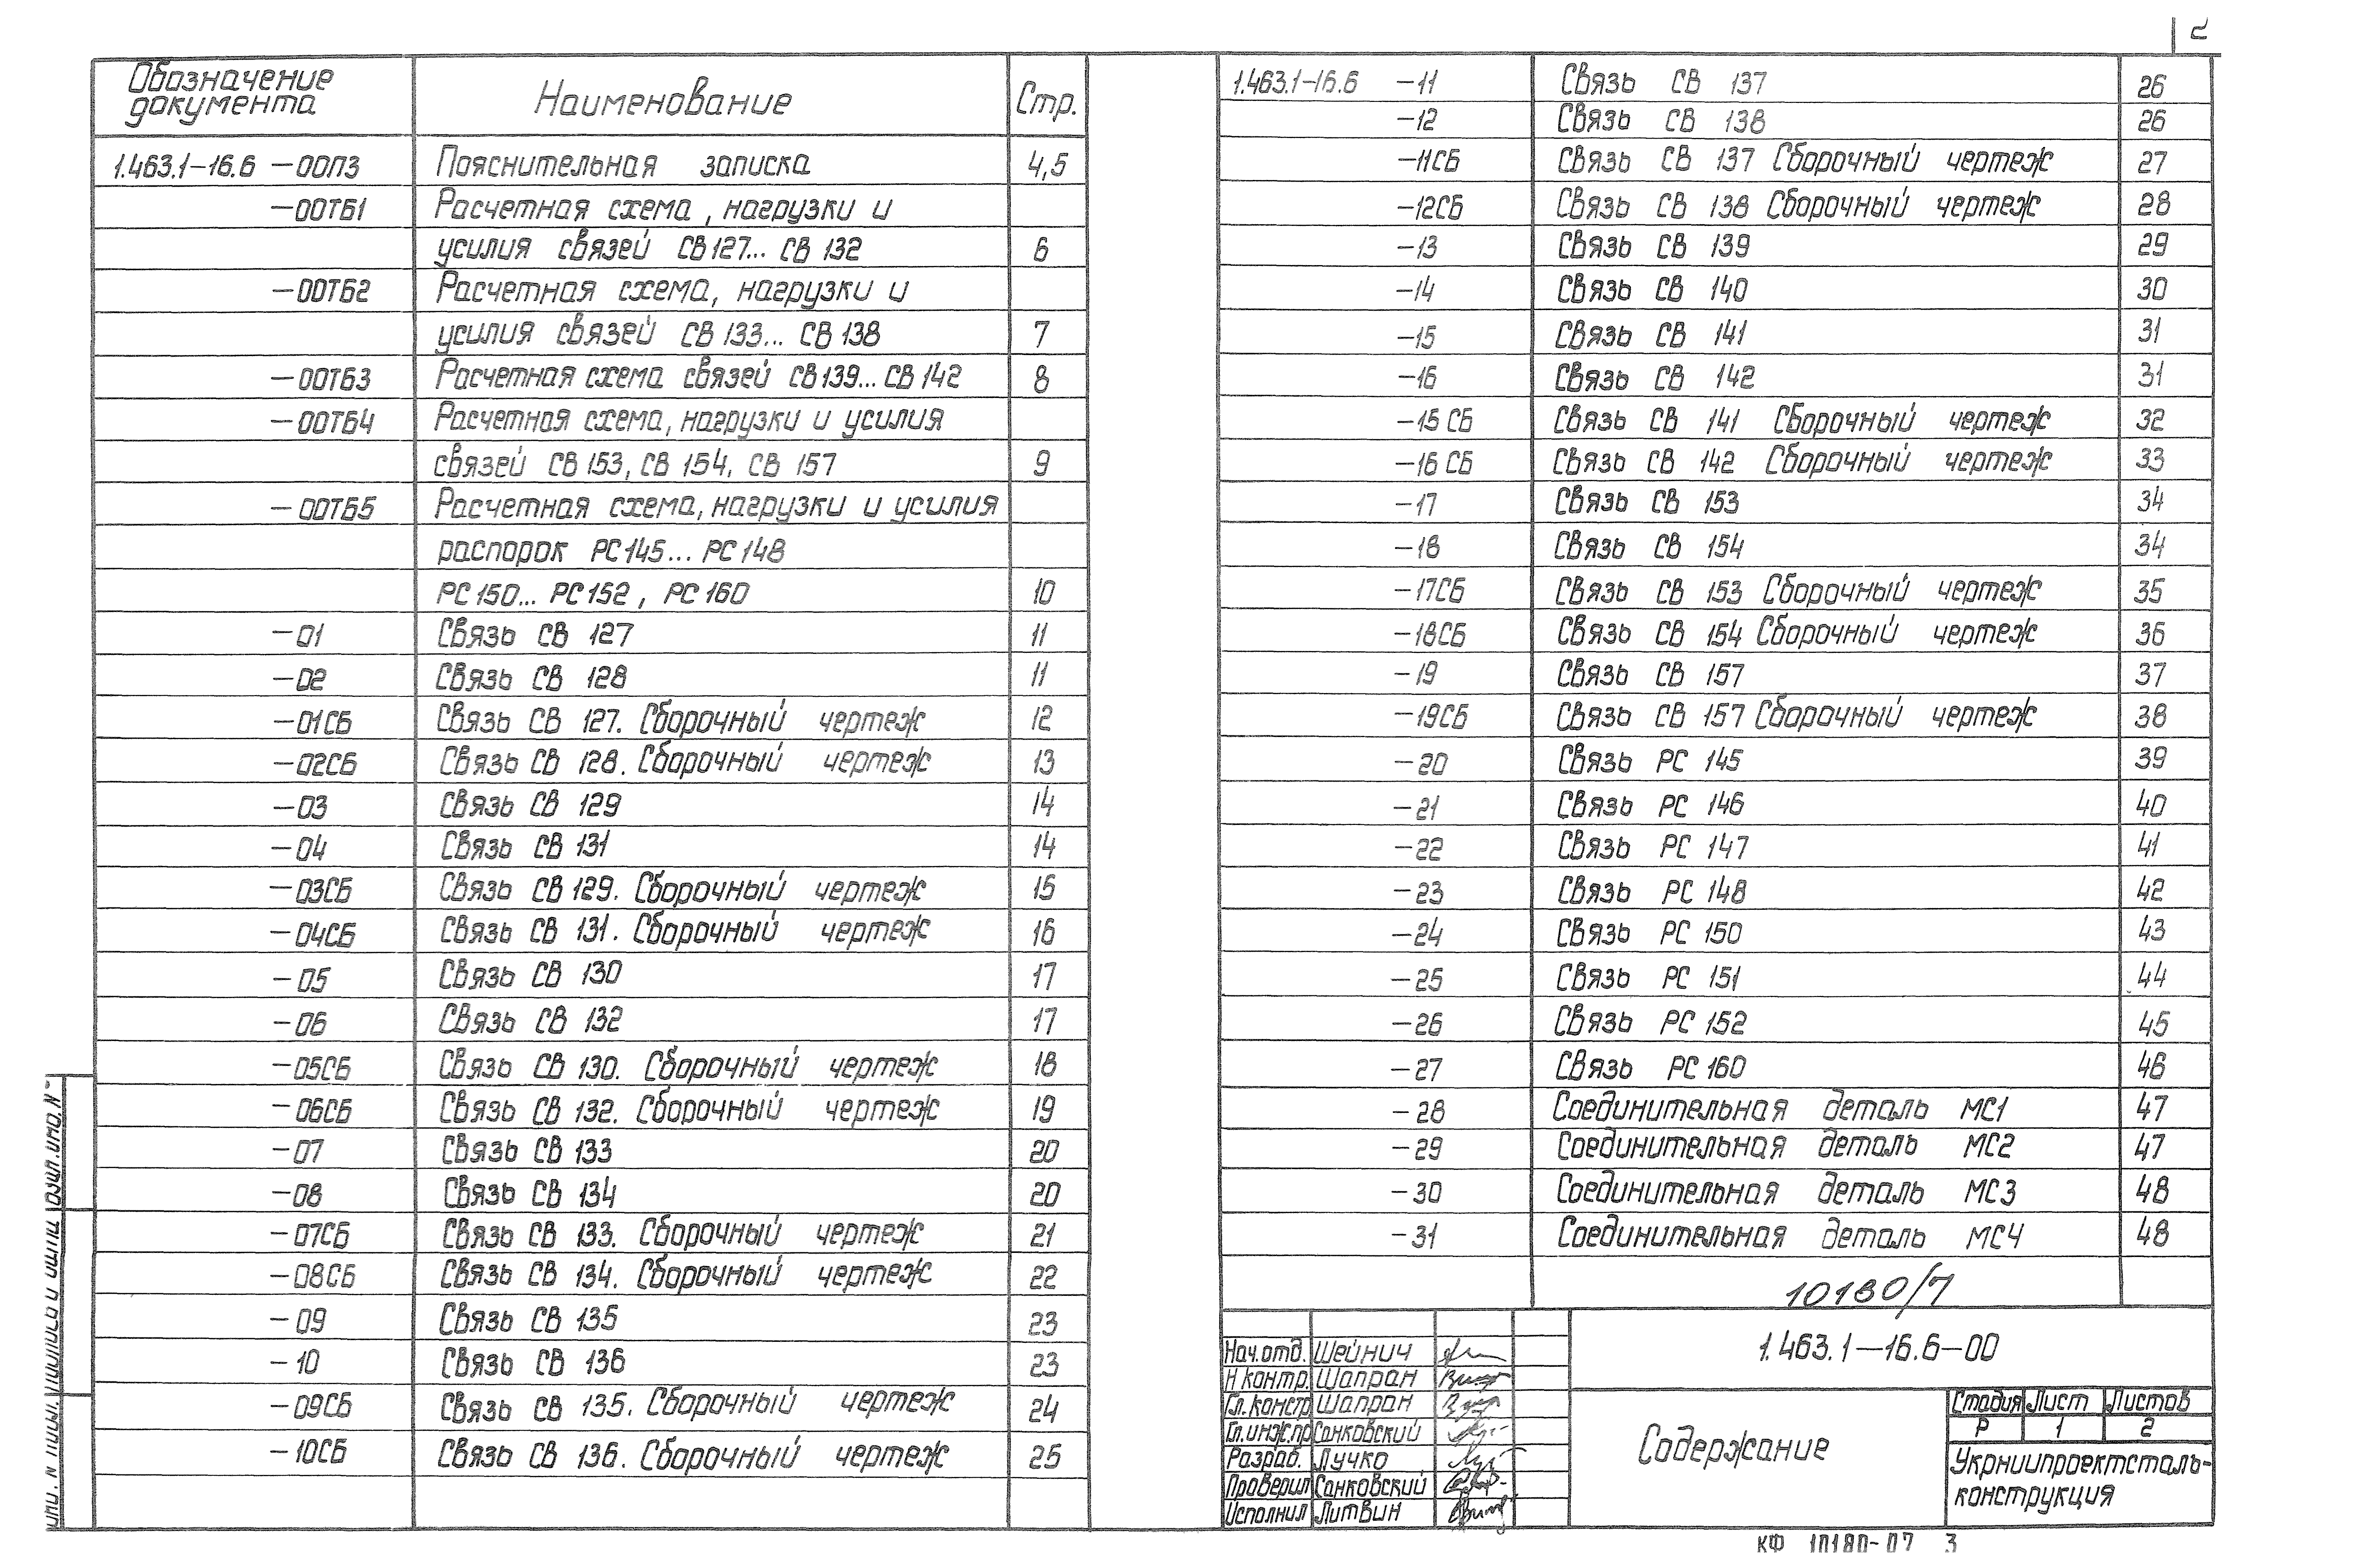 2
Обозначение документа Наименование Стр.
1.463.1-16.6 -00ПЗ Пояснительная записка 4,5
-00ТБ1 Расчетная схема, нагрузки и
усилия связей СВ127... СВ 132 6
-00ТБ2 Расчетная схема, нагрузки и
усилия связей СВ 133... СВ 138 7
-00ТБ3 Расчетная схема связей СВ139... СВ 142 8
-00ТБ4 Расчетная схема, нагрузки и усилия
связей СВ 153, СВ 154, СВ 157 9
-00ТБ5 Расчетная схема, нагрузки и усилия
распорок РС145... РС148
РС150... РС152, РС160 10
-01 Связь СВ 127 11
-02 Связь СВ 128 11
-01СБ Связь СВ 127. Сборочный чертеж 12
-02СБ Связь СВ 128. Сборочный чертеж 13
-03 Связь СВ 129 14
-04 Связь СВ 131 14
-03СБ Связь СВ 129. Сборочный чертеж 15
-04СБ Связь СВ 131. Сборочный чертеж 16
-05 Связь СВ 130 17
-06 Связь СВ 132 17
-05СБ Связь СВ 130. Сборочный чертеж 18
-06СБ Связь СВ 132. Сборочный чертеж 19
-07 Связь СВ 133 20
-08 Связь СВ 134 20
-07СБ Связь СВ 133. Сборочный чертеж 21
-08СБ Связь СВ 134. Сборочный чертеж 22
-09 Связь СВ 135 23
-10 Связь СВ 136 23
-09СБ Связь СВ 135. Сборочный чертеж 24
-10СБ Связь СВ 136. Сборочный чертеж 25
1.463.1-16.6 -11 Связь СВ 137 26
-12 Связь СВ 138 26
-11СБ Связь СВ 137 Сборочный чертеж 27
-12СБ Связь СВ 138 Сборочный чертеж 28
-13 Связь СВ 139 29
-14 Связь СВ 140 30
-15 Связь СВ 141 31
-16 Связь СВ 142 31
-15 СБ Связь СВ 141 Сборочный чертеж 32
-16 СБ Связь СВ 142 Сборочный чертеж 33
-17 Связь СВ 153 34
-18 Связь СВ 154 34
-17СБ Связь СВ 153 Сборочный чертеж 35
-18СБ Связь СВ 154 Сборочный чертеж 36
-19 Связь СВ 157 37
-19СБ Связь СВ 157 Сборочный чертеж 38
-20 Связь РС 145 39
-21 Связь РС 146 40
-22 Связь РС 147 41
-23 Связь РС 148 42
-24 Связь РС 150 43
-25 Связь РС 151 44
-26 Связь РС 152 45
-27 Связь РС 160 46
-28 Соединительная деталь МС1 47
-29 Соединительная деталь МС2 47
-30 Соединительная деталь МС3 48
-31 Соединительная деталь МС4 48
10180/7
1.463.1-16.6-00
Нач.отд. Шейнич
Н контр. Шапран
Гл. констр Шапран
Гл.инж.пр Санковский
Разраб. Лучко
Проверил Санковский
Исполнил Литвин
Содержание
Стадия Лист Листов
Р 1 2
Укрниипроектсталь-
конструкция
КФ 10180-07 3